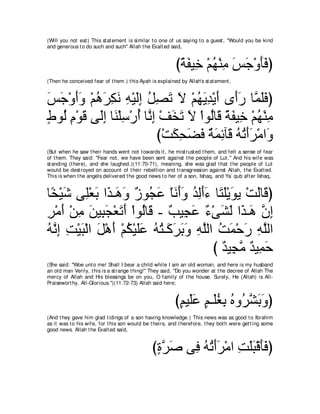 (Will you not eat) This statement is similar to one of us saying to a guest, "Would you be kind
and generous to do such and such" Allah the Exalted said,
(فَأَوْجَسَ مِنْهُمْ خِيفَةً)
(Then he conceived fear of them.) this Ayah is explained by Allah's statement,
(فَلَمَّا رَأَى أَيْدِيَهُمْ لاَ تَصِلُ إِلَيْهِ نَكِرَهُمْ وَأَوْجَسَ
مِنْهُمْ خِيفَةً قَالُواْ لاَ تَخَفْ إِنَّا أُرْسِلْنَا إِلَى قَوْمِ لُوطٍ
وَامْرَأَتُهُ قَآئِمَةٌ فَضَحِكَتْ)
(But when he saw their hands went not towards it, he mistrusted them, and felt a sense of fear
of them. They said: "Fear not, we have been sent against the people of Lut." And his wife was
standing (there), and she laughed.)(11:70-71), meaning, she was glad that the people of Lut
would be destroyed on account of their rebellion and transgression against Allah, the Exalted.
This is when the angels delivered the good news to her of a son, Ishaq, and Ya`qub after Ishaq,
(قَالَتْ يوَيْلَتَا ءَأَلِدُ وَأَنَاْ عَجُوزٌ وَهَـذَا بَعْلِى شَيْخًا
إِنَّ هَـذَا لَشَىْءٌ عَجِيبٌ - قَالُواْ أَتَعْجَبِينَ مِنْ أَمْرِ
اللَّهِ رَحْمَتُ اللَّهِ وَبَرَكَـتُهُ عَلَيْكُمْ أَهْلَ الْبَيْتِ إِنَّهُ
حَمِيدٌ مَّجِيدٌ )
(She said: "Woe unto me! Shall I bear a child while I am an old woman, and here is my husband
an old man Verily, this is a strange thing!" They said, "Do you wonder at the decree of Allah The
mercy of Allah and His blessings be on you, O family of the house. Surely, He (Allah) is All-
Praiseworthy, All-Glorious.")(11:72-73) Allah said here;
(وَبَشَّرُوهُ بِغُلَـمٍ عَلَيمٍ)
(And they gave him glad tidings of a son having knowledge.) This news was as good to Ibrahim
as it was to his wife, for this son would be theirs, and therefore, they both were getting some
good news. Allah the Exalted said,
(فَأَقْبَلَتِ امْرَأَتُهُ فِى صَرَّةٍ)